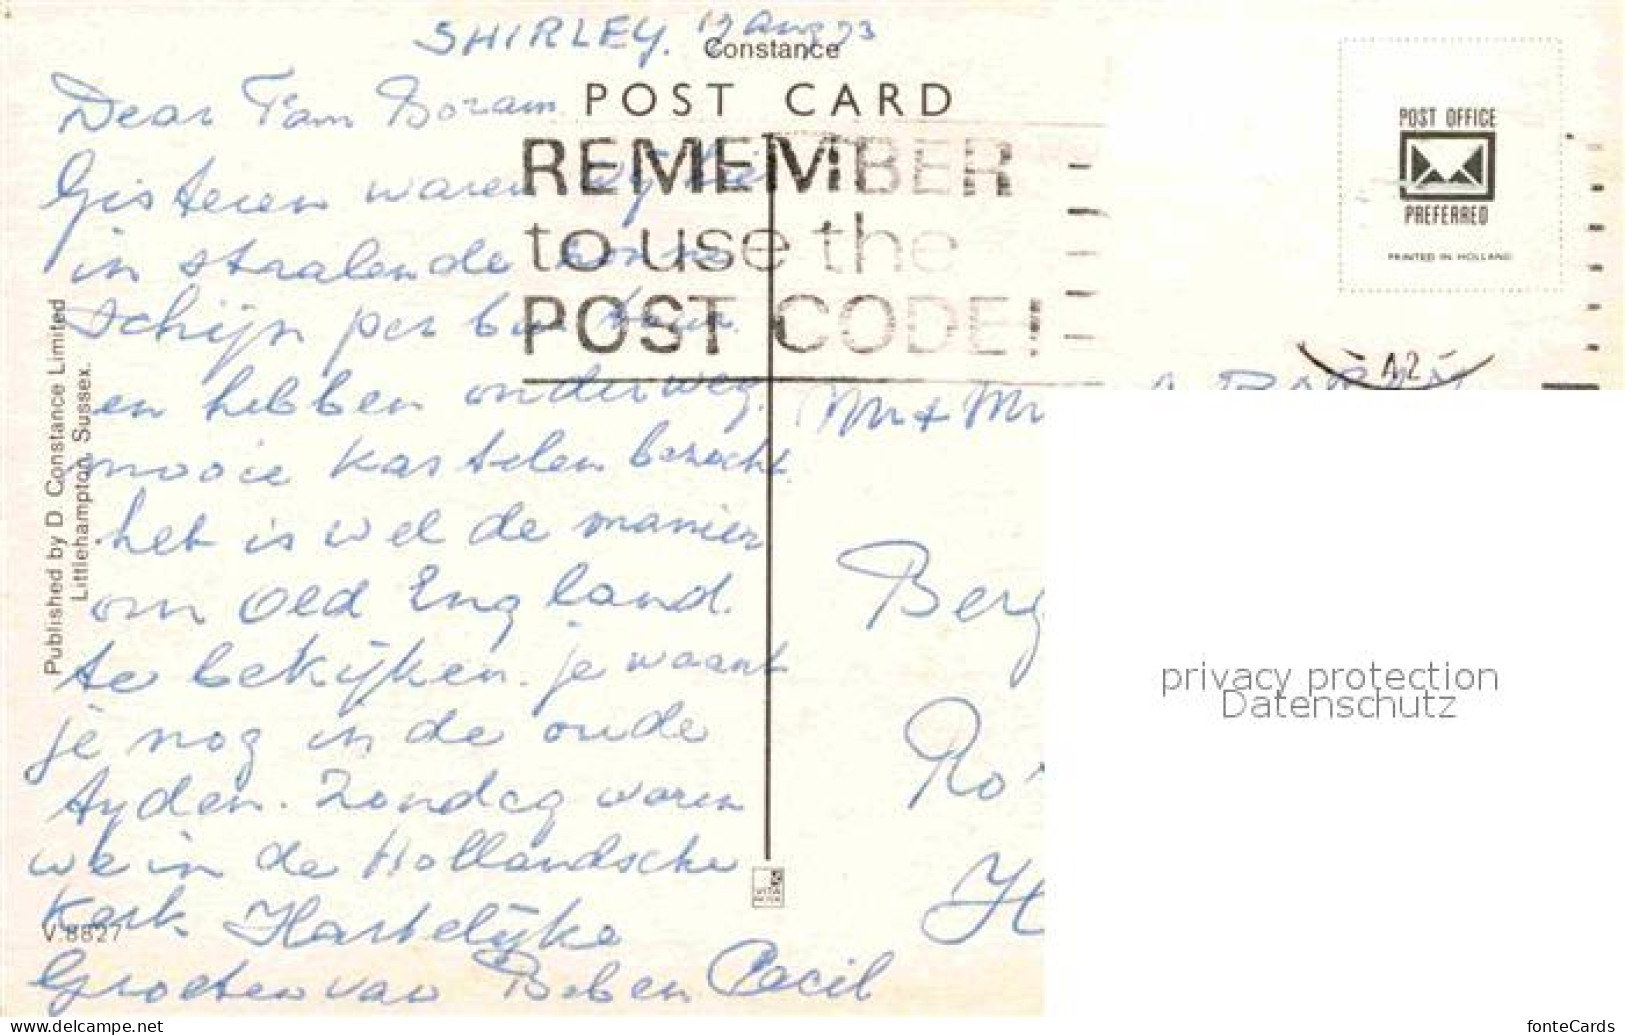 SHIRLEY. 19 Aug 73
Constance
POST CARD
Dear Fam Bozam
REMEMBER
to use the
POST CODE!
Gisteren waren wij hier
in stralende zonne
schijn per bus
en hebben onderweg.
mooie kastelen bezocht
het is wel de manier
om Old England.
te bekijken. je waant
je nog in de oude
tyden. Zondag waren
we in de Hollandsche
Kerk. Hartelijke
Groeten van Bob en Cecil
Published by D Constance Limited
Littlehampton, Sussex.
V.8827
POST OFFICE
PREFERRED
PRINTED IN HOLLAND
A2
Mr + Mr
Berg
Ro
H
privacy protection
Datenschutz
www.delcampe.net
fonteCards